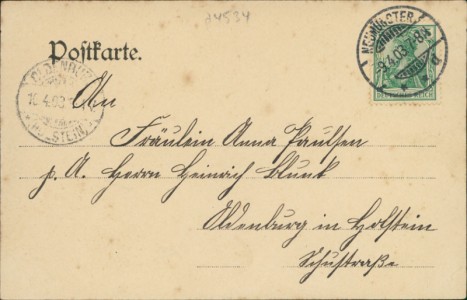 14534
Postkarte.
NEUMÜNSTER
9.4.03.7-8N
OLDENBURG
10.4.03
HOLSTEIN
An
Fräulein Anna Paulsen
p. A. Herrn Heinrich Blunk
Oldenburg in Holstein
Schustraße